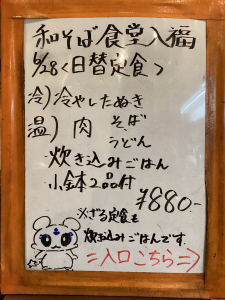 和そば食堂入福
5/28<日替定食>
冷)冷やしたぬき
温)肉 そば、うどん
炊き込みごはん
小鉢2品付
¥880-
※ざる定食も
炊き込みごはんです。
⇒入口こちら⇒